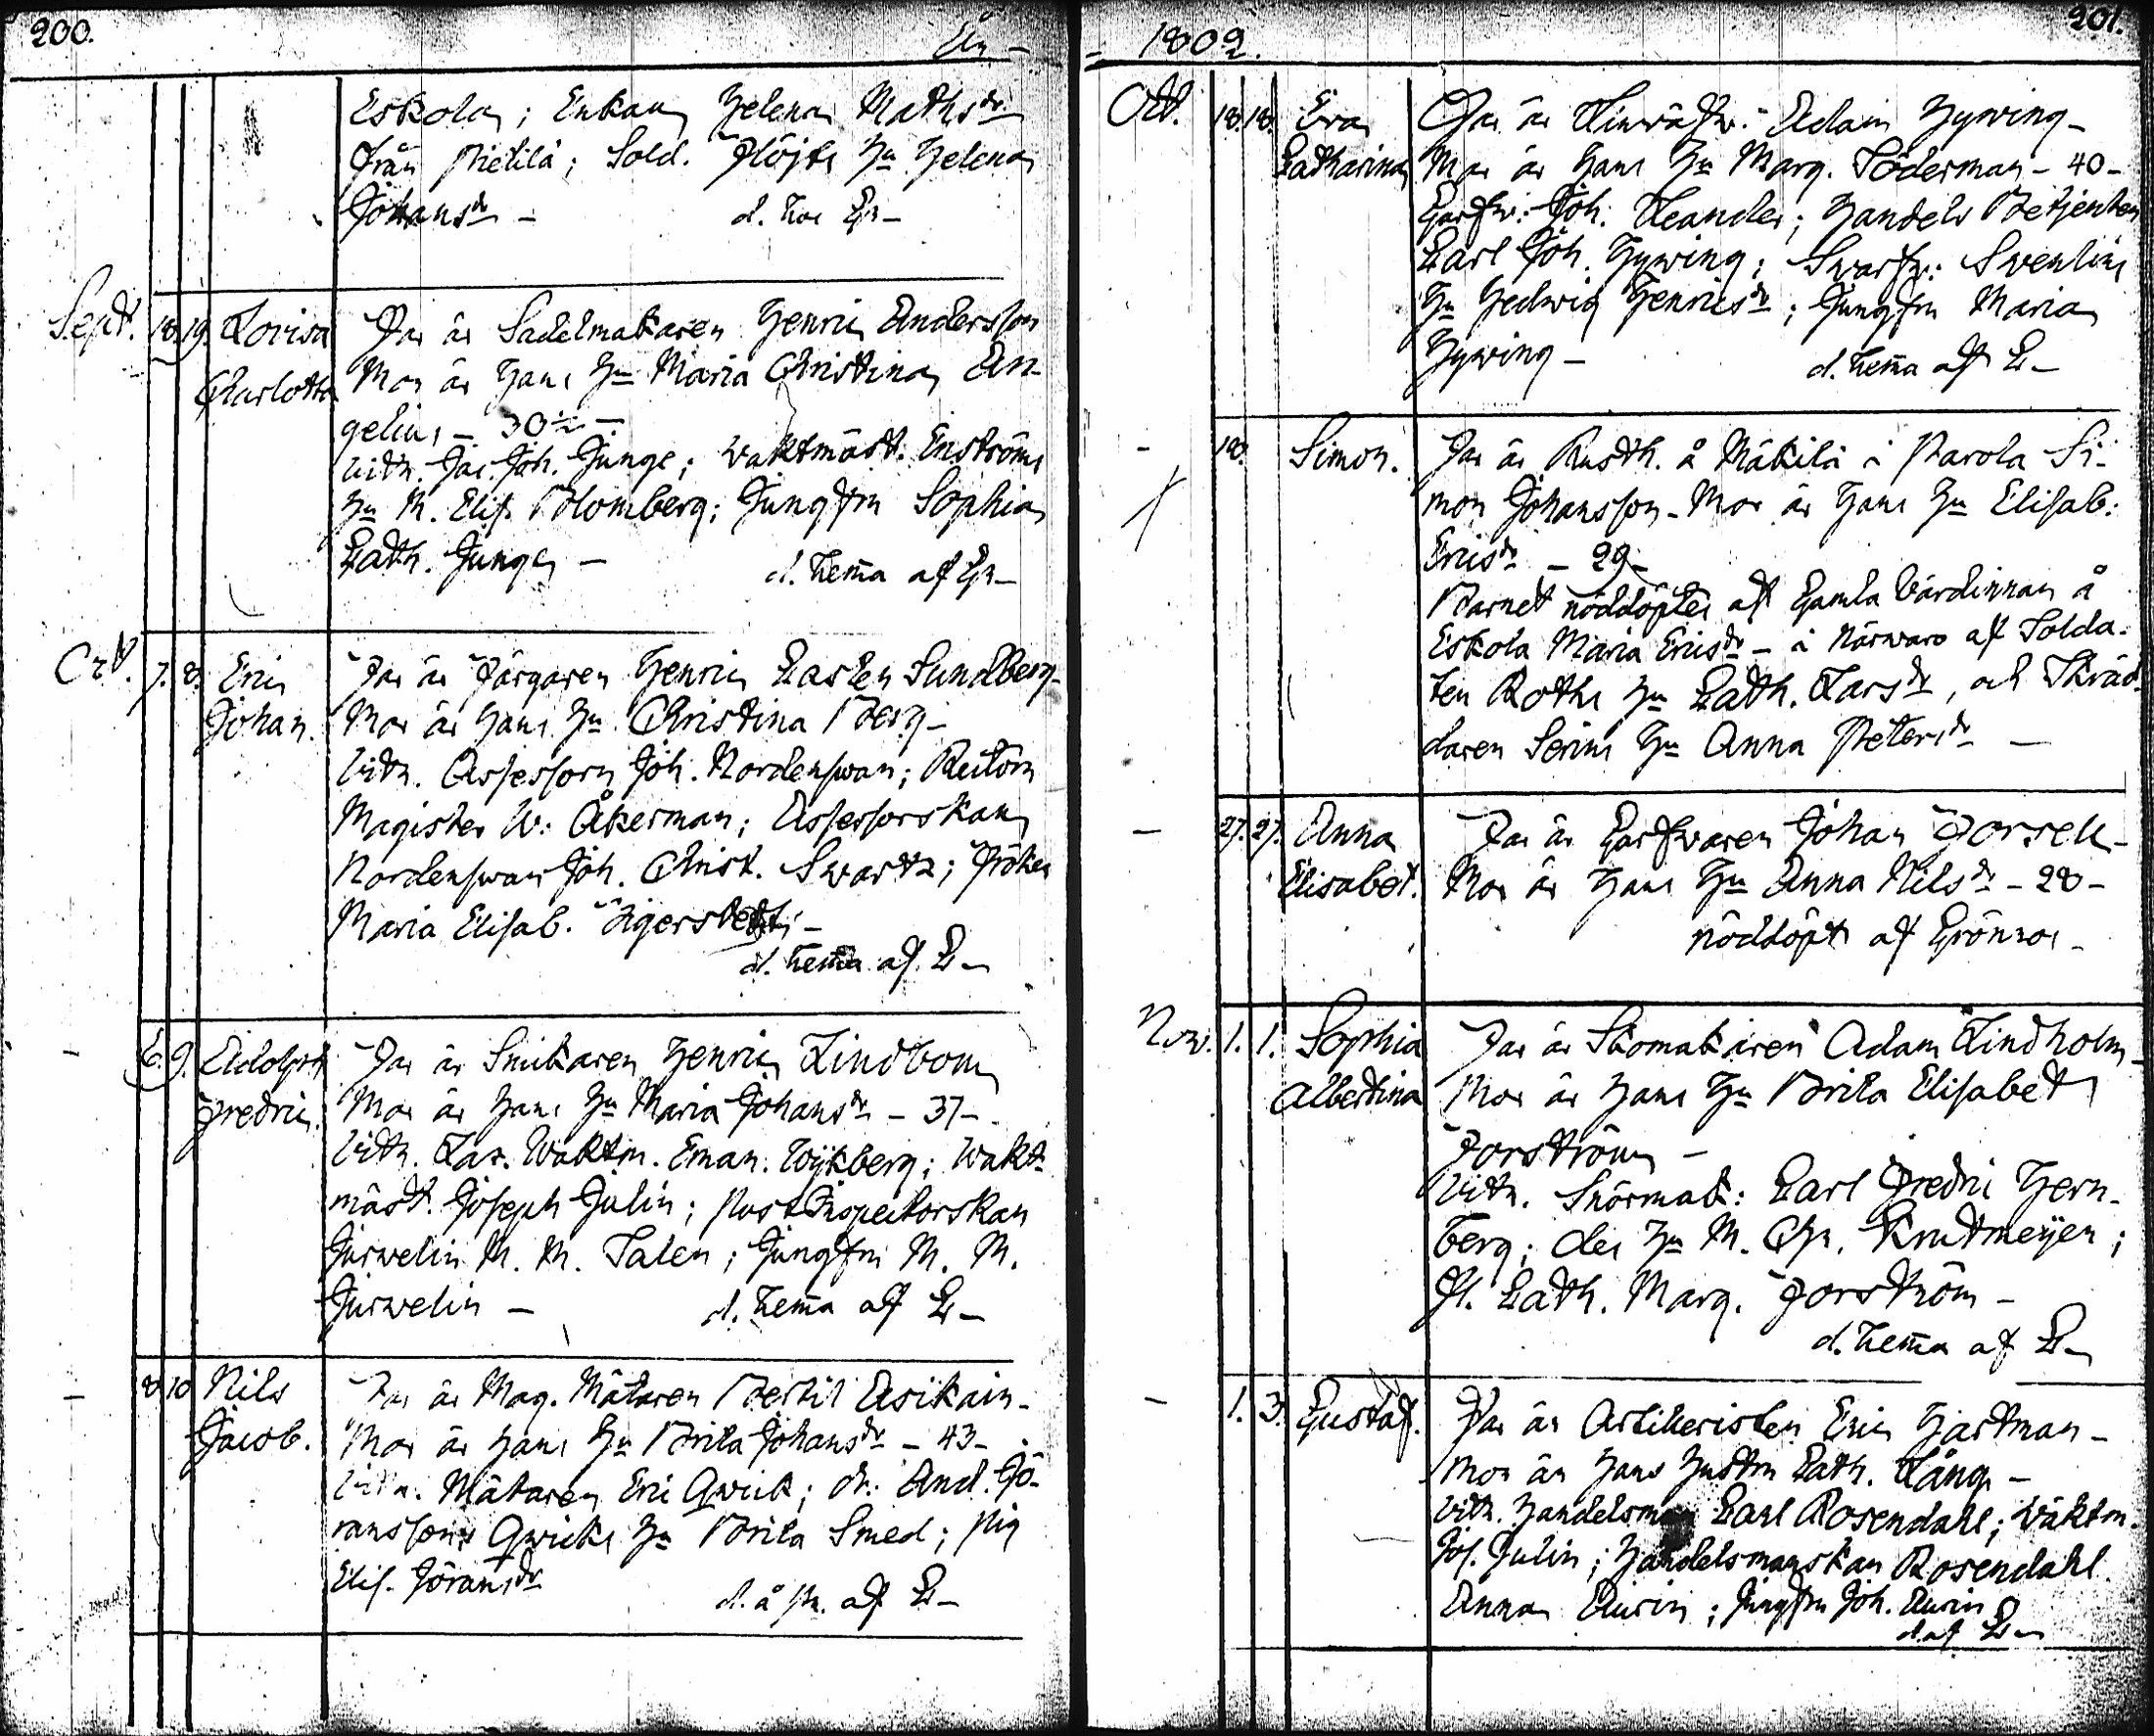 200.
Eskola; Enkan Helena Mathsdr
från Pietilä; Sold. Flöjts Hu Helena
Johansdr – d. hos Gr–
Sept. 18. 19. Lovisa Charlotta
Far är Sadelmakaren Henric Andersson
Mor är Hans Hu Maria Christina An-
gelin, – 30 –
Vittn. Jac. Joh. Junge; Waktmäst. Enströms
Hu M. Elis. Blomberg; Jungfrn Sophia
Cath. Junge –
d. hema af Gr–
Oct. 7. 8. Eric Johan.
Far är Färgaren Henric Casten Sundberg–
Mor är Hans Hu Christina Berg–
Vittn. Assessorn Joh. Nordenswan; Rectorn
Magister W: Åkerman; Assessorskan
Nordenswan Joh. Christ. Swartz; Fröken
Maria Elisab.
d. hema af L–
– 6. 9. Adolph Fredric.
Far är Snikaren Henric Lindbom
Mor är Hans Hu Maria Johansdr – 37–
Vittn. Laz. Waktm. Eman. Wijkberg; Wakt-
mäst. Joseph Julin; Post Inspectorskan
Jurvelin M. M. Salen; Jungfrn M. M.
Jurvelin – d. hema af L–
– 8. 10 Nils Jacob.
Far är Mag. Mätaren Bertil Asikain–
Mor är Hans Hu Brita Johansdr – 43–
Vittn. Mätaren Eric Qwick; dr: And. Jö-
ranssons Qwicks Hu Brita Smed; pig
Elis. Jöransdr
d. å pr. af L–
= 1802.
201.
Oct. 18. 18. Eva Catharina
Far är Linväfw: Adam Hywing–
Mor är Hans Hu Marg. Söderman – 40–
Garfw: Joh. Leander; Handels Betjenten
Carl Joh. Hywing; Swarfw: Swenlins
Hu Hedwig Henricsdr; Jungfrn Maria
Hywing – d. hema af L–
– 18. Simon.
Far är Rusth. å Mäkilä i Parola Si-
mon Johansson– Mor är Hans Hu Elisab:
Ericsdr – 29–
Barnet nöddöptes af Gamla Värdinnan å
Eskola Maria Ericsdr – i Närwaro af Solda-
ten Roths Hu Cath. Larsdr, och Skräd-
daren Serins Hu Anna Petersdr –
– 27. 27. Anna Elisabet.
Far är Garfwaren Johan Forsell–
Mor är Hans Hu Anna Nilsdr – 28–
nöddöpt af Grönros–
Nov. 1. 1. Sophia Albertina
Far är Skomakaren Adam Lindholm–
Mor är Hans Hu Brita Elisabet
Forström –
Vittn. Snörmak: Carl Fredric Hern-
berg; des Hu M. Chr. Krutmeijer;
Fl. Cath. Marg. Forström –
d. hema af L–
– 1. 3. Gustaf.
Far är Artilleristen Eric Hartman–
Mor är Hans Hustru Cath. Lång –
Vittn. Handelsman Carl Rosendahl; Waktm.
Jos. Julin; Handelsmanskan Rosendahl
Anna Aurin; Jungfrn Joh. Aurin
d. af L–